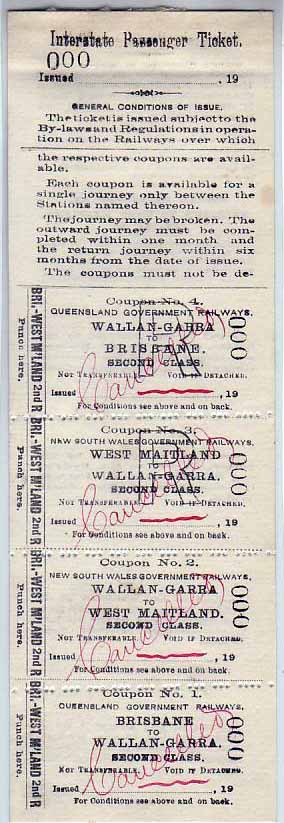 Interstate Passenger Ticket.
000
Issued , 19
GENERAL CONDITIONS OF ISSUE.
The ticket is issued subject to the
By-laws and Regulations in opera-
tion on the Railways over which
the respective coupons are avail-
able.
Each coupon is available for a
single journey only between the
Stations named thereon.
The journey may be broken. The
outward journey must be com-
pleted within one month and
the return journey within six
months from the date of issue.
The coupons must not be de-
Coupon No. 4.
QUEENSLAND GOVERNMENT RAILWAYS.
WALLAN-GARRA
TO
BRISBANE.
SECOND CLASS.
NOT TRANSFERABLE. VOID IF DETACHED.
Issued , 19
For Conditions see above and on back.
000
Cancelled
BRI.-WEST M'LAND 2nd R
Punch here.
Coupon No. 3.
NEW SOUTH WALES GOVERNMENT RAILWAYS.
WEST MAITLAND
TO
WALLAN-GARRA.
SECOND CLASS.
NOT TRANSFERABLE. VOID IF DETACHED.
Issued , 19
For Conditions see above and on back.
000
Cancelled
BRI.-WEST M'LAND 2nd R
Punch here.
Coupon No. 2.
NEW SOUTH WALES GOVERNMENT RAILWAYS.
WALLAN-GARRA
TO
WEST MAITLAND.
SECOND CLASS.
NOT TRANSFERABLE. VOID IF DETACHED.
Issued , 19
For Conditions see above and on back.
000
Cancelled
BRI.-WEST M'LAND 2nd R
Punch here.
Coupon No. 1.
QUEENSLAND GOVERNMENT RAILWAYS.
BRISBANE
TO
WALLAN-GARRA.
SECOND CLASS.
NOT TRANSFERABLE. VOID IF DETACHED.
Issued , 19
For Conditions see above and on back.
000
Cancelled
BRI.-WEST M'LAND 2nd R
Punch here.